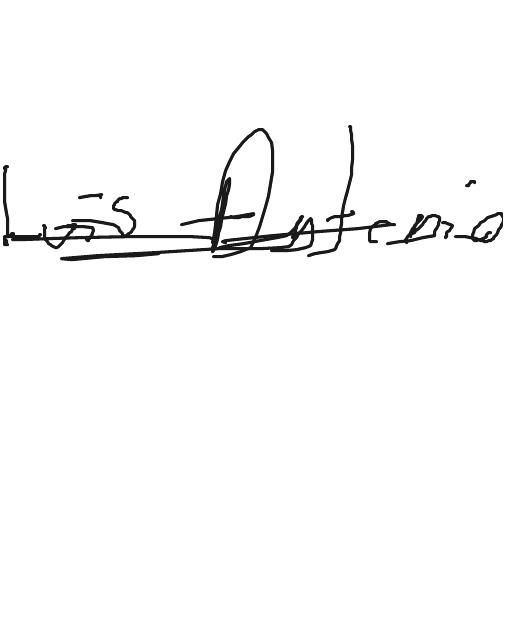 Luis Antenio